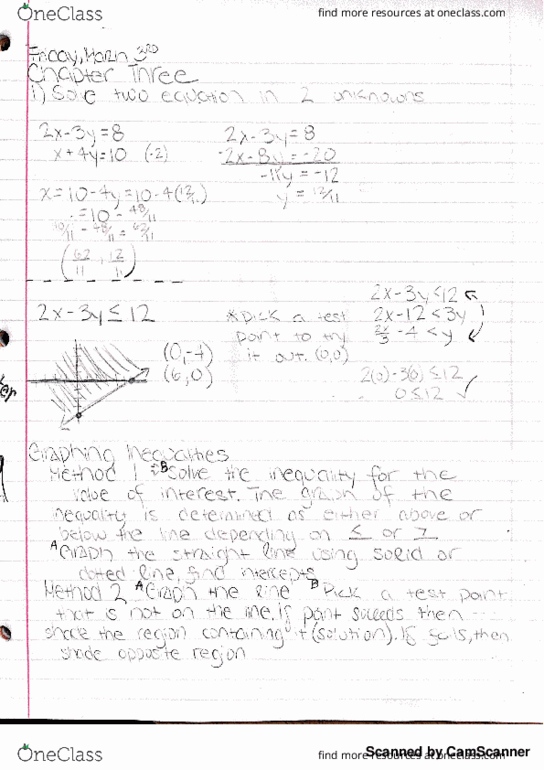 OneClass find more resources at oneclass.com
Friday, March 3rd
Chapter Three
1) Solve two equation in 2 unknowns
2x-3y=8 2x-3y=8
x+4y=10 (-2) -2x-8y=-20
-11y=-12
x=10-4y=10-4(12/11) y=12/11
=10-48/11
110/11-48/11=62/11
(62/11, 12/11)
2x-3y≤12
2x-3y≤12 *Pick a test 2x-12<3y
point to try 2x/3-4<y
(0,-4) it out. (0,0)
(6,0) 2(0)-3(0)≤12
0≤12 ✓
Graphing Inequalities
Method 1 B Solve the inequality for the
value of interest. The graph of the
inequality is determined as either above or
below the line depending on ≤ or ≥
A Graph the straight line using solid or
doted line, find intercepts
Method 2 A Graph the line B Pick a test point
that is not on the line. If point suceeds then
shade the region containing it (solution). If fails, then
shade opposite region
OneClass find more resources at oneclass.com
Scanned by CamScanner